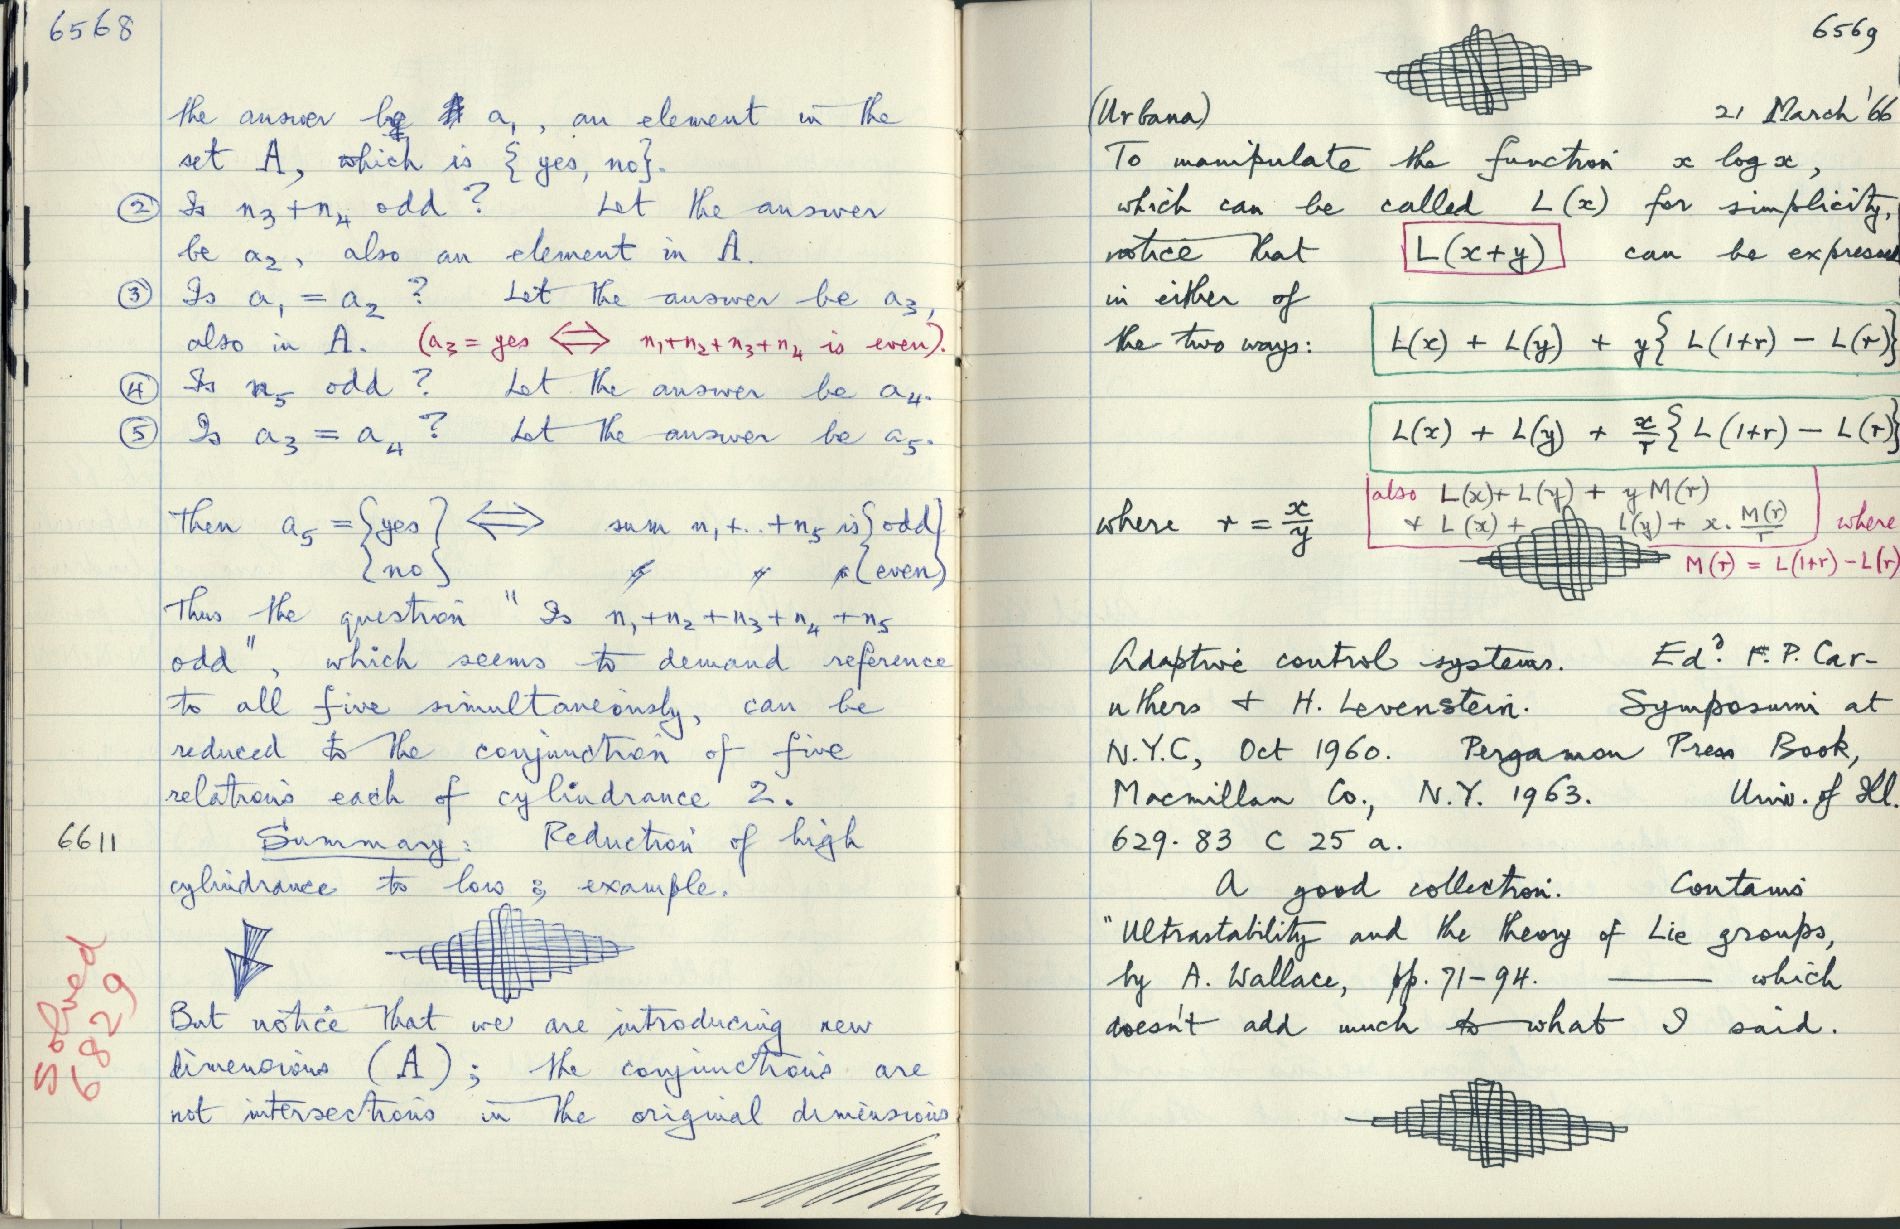 6568
the answer be a₁, an element in the
set A, which is {yes, no}.
② Is n₃+n₄ odd? Let the answer
be a₂, also an element in A.
③ Is a₁ = a₂ ? Let the answer be a₃,
also in A. (a₃ = yes ⟺ n₁+n₂+n₃+n₄ is even).
④ Is n₅ odd? Let the answer be a₄.
⑤ Is a₃ = a₄ ? Let the answer be a₅.
Then a₅ = {yes} ⟺ sum n₁+..+n₅ is {odd}
{no} 〃 〃 〃 {even}
Thus the question "Is n₁+n₂+n₃+n₄+n₅
odd", which seems to demand reference
to all five simultaneously, can be
reduced to the conjunction of five
relations each of cylindrance 2.
6611 Summary: Reduction of high
cylindrance to low; example.
Solved
6829
But notice that we are introducing new
dimensions (A); the conjunctions are
not intersections in the original dimensions
6569
(Urbana) 21 March '66
To manipulate the function x log x,
which can be called L(x) for simplicity,
notice that L(x+y) can be expressed
in either of
the two ways: L(x) + L(y) + y{L(1+r) − L(r)}
L(x) + L(y) + x/r {L(1+r) − L(r)}
also L(x)+L(y) + y M(r)
where r = x/y + L(x) + L(y) + x. M(r)/r where
M(r) = L(1+r) − L(r)
Adaptive control systems. Ed? F. P. Car-
uthers + H. Levenstein. Symposium at
N.Y.C, Oct 1960. Pergamon Press Book,
Macmillan Co., N.Y. 1963. Univ. of Ill.
629.83 C 25 a.
A good collection. Contains
"Ultrastability and the theory of Lie groups,
by A. Wallace, pp. 71–94. —— which
doesn't add much to what I said.